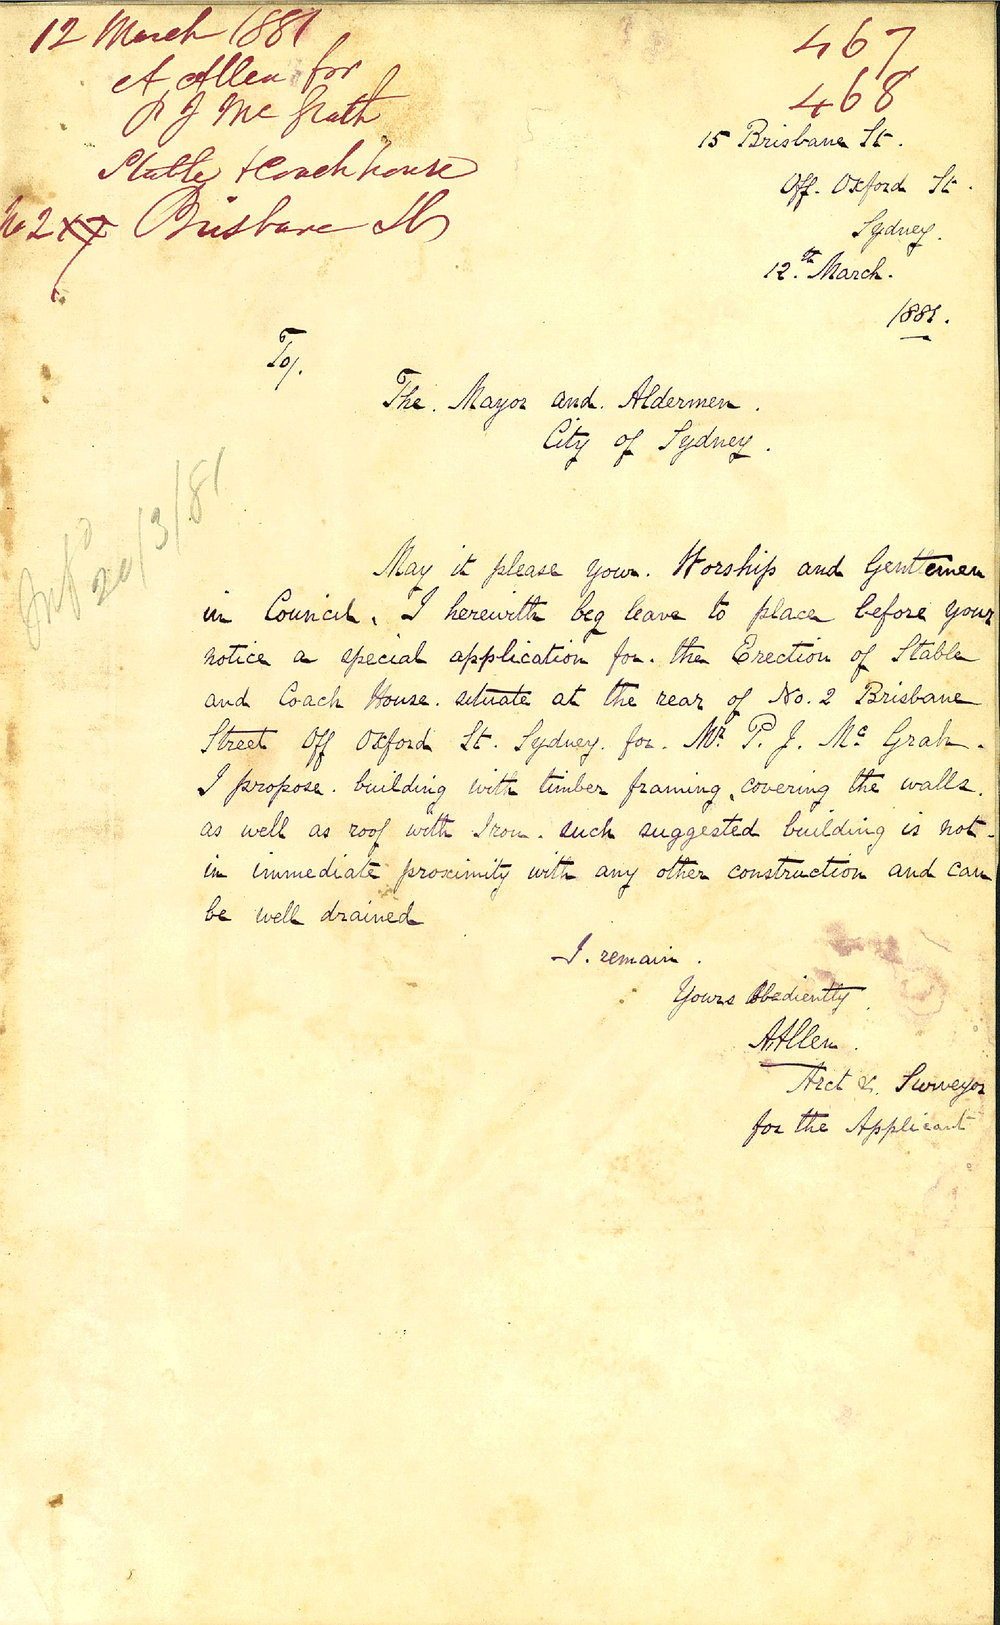 12 March 1881
A Allen for
P J McGrath
Stable & Coach house
No 2 Brisbane St
467
468
15 Brisbane St.
Off. Oxford St.
Sydney.
12.th March.
1881.
To,
The. Mayor and. Aldermen.
City of Sydney.
20/3/81
May it please your. Worship and Gentlemen
in Council. I herewith beg leave to place before your
notice a special application for. the Erection of Stable
and Coach House. situate at the rear of No. 2 Brisbane
Street Off Oxford St. Sydney. for. Mr. P. J. Mc Grah.
I propose. building with timber framing, covering the walls.
as well as roof with Iron. such suggested building is not.
in immediate proximity with any other construction and can
be well drained
I. remain.
Yours Obediently
A. Allen.
Arct &. Surveyor
for the Applicant